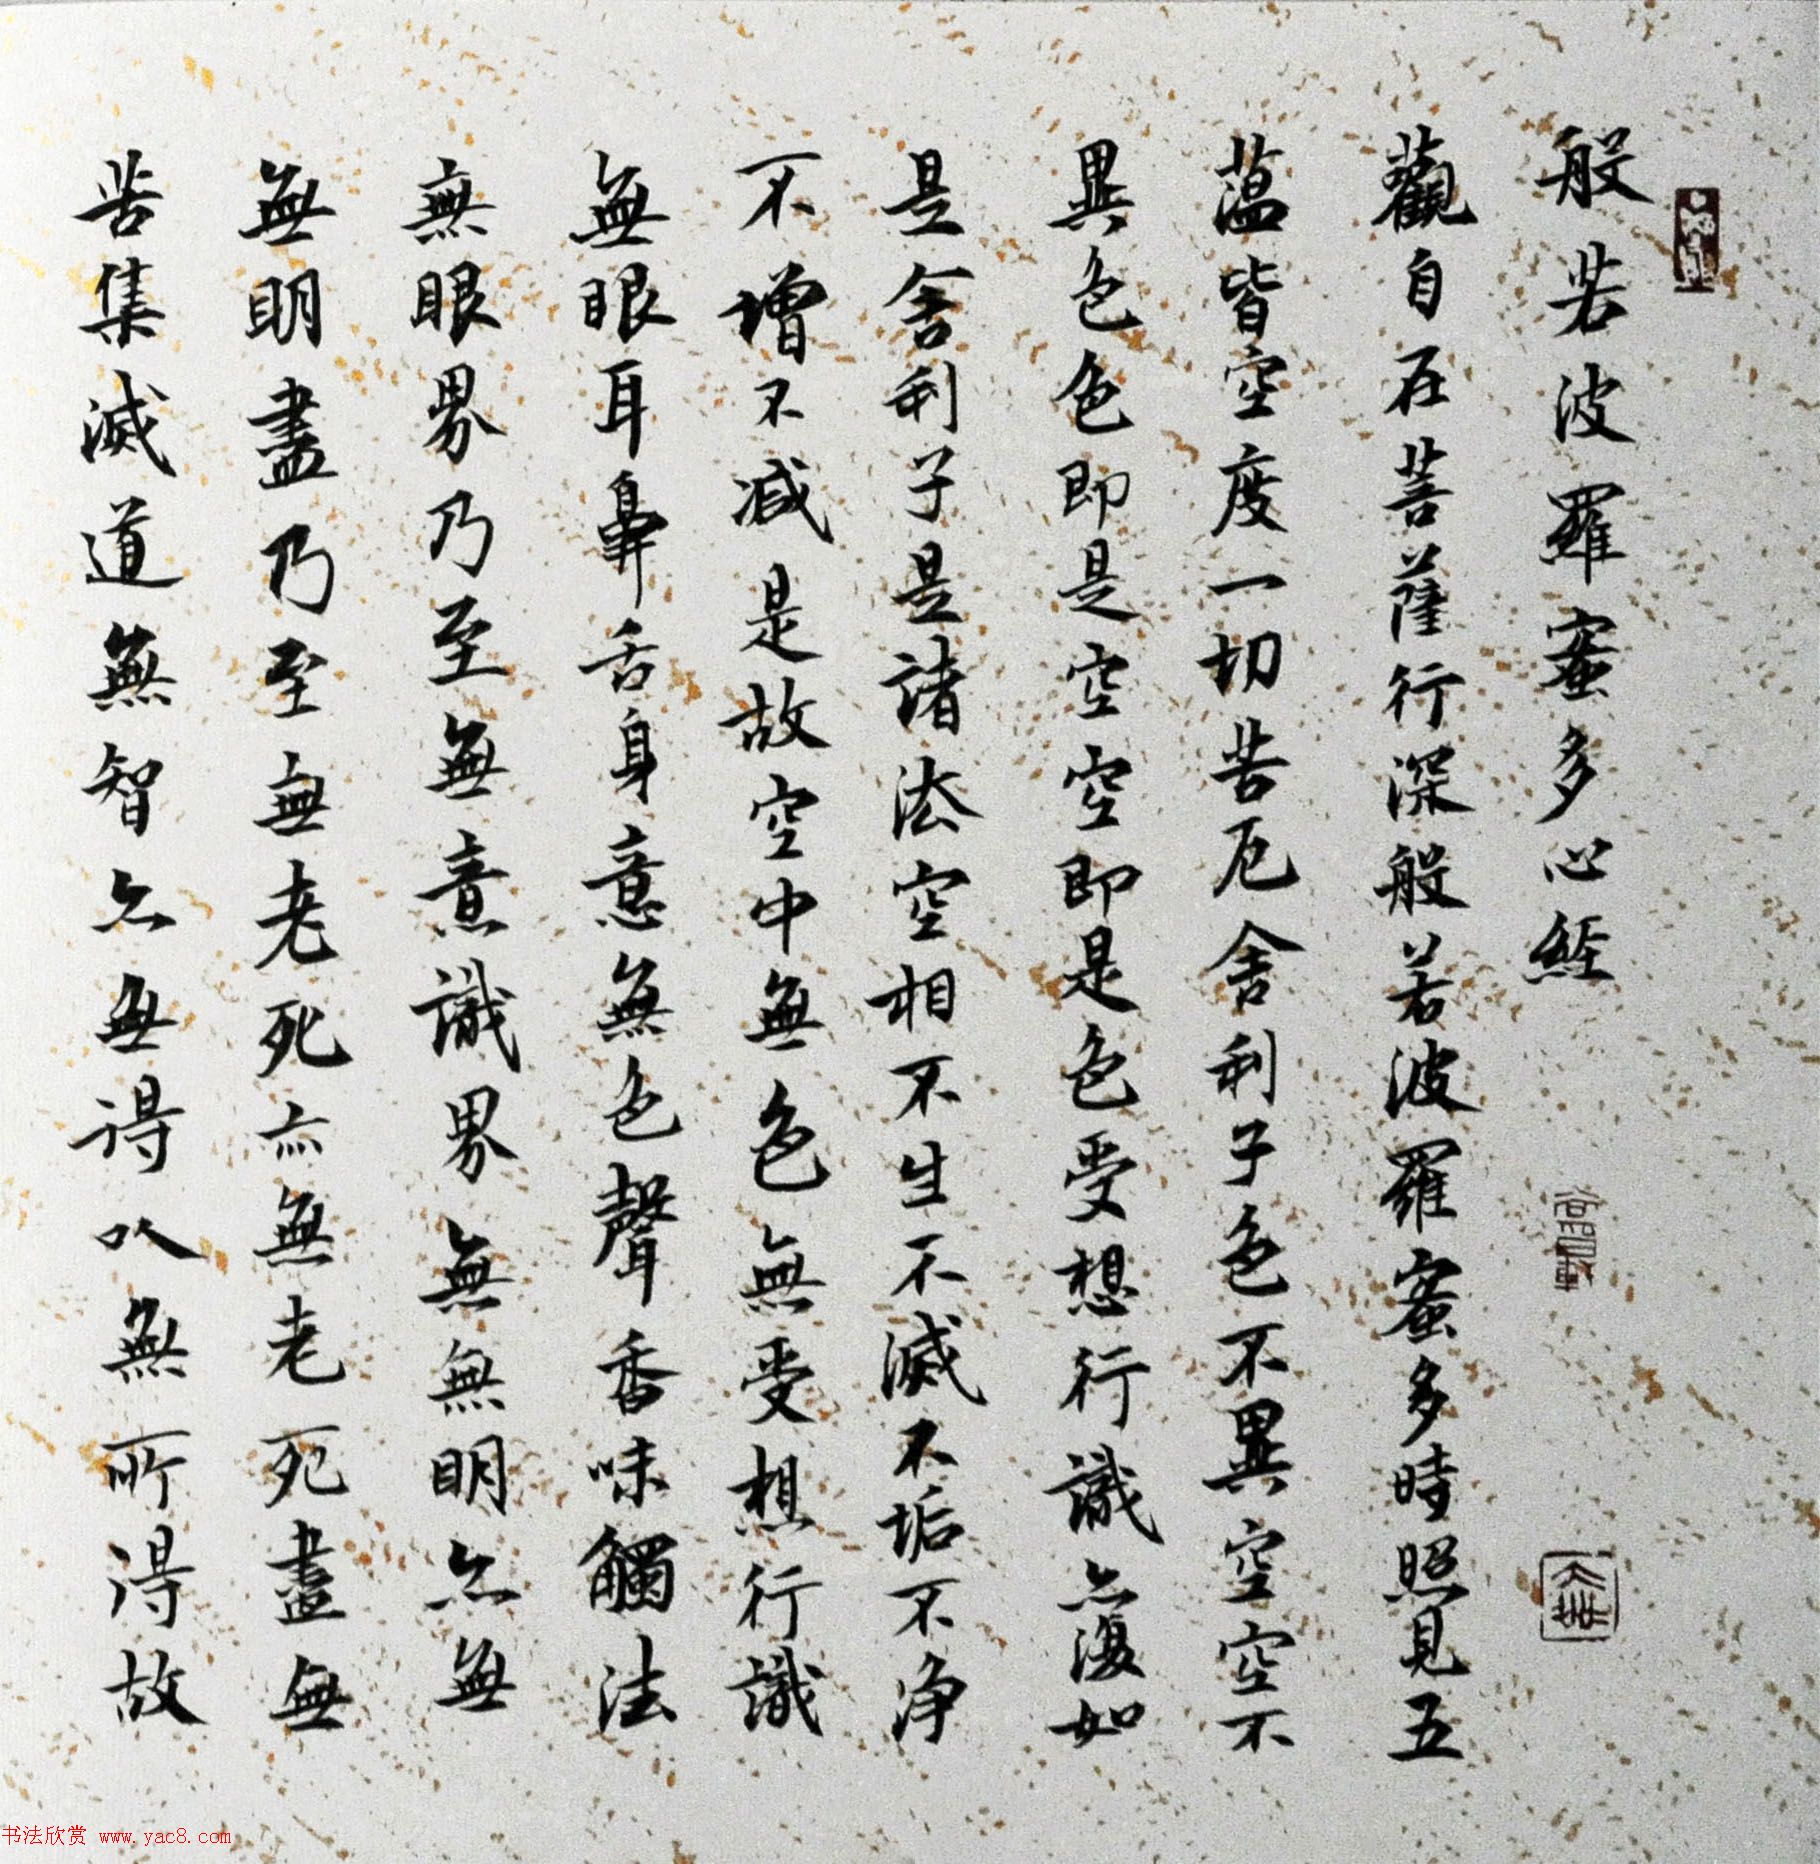 般若波羅蜜多心經
觀自在菩薩行深般若波羅蜜多時照見五
蕰皆空度一切苦厄舍利子色不異空空不
異色色即是空空即是色受想行識亦復如
是舍利子是諸法空相不生不滅不垢不净
不增不減是故空中無色無受想行識
無眼耳鼻舌身意無色聲香味觸法
無眼界乃至無意識界無無明亦無
無明盡乃至無老死亦無老死盡無
苦集滅道無智亦無得以無所得故
书法欣赏 www.yac8.com